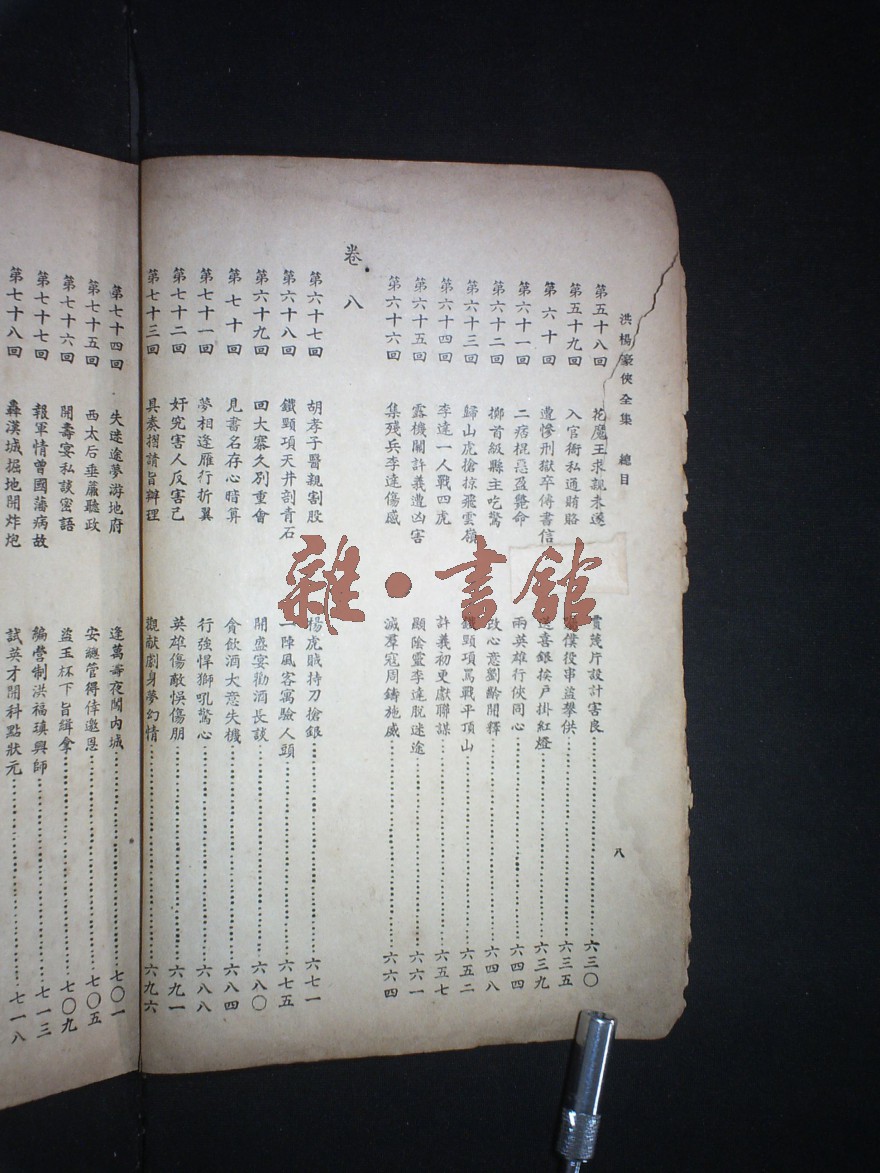 洪楊豪俠全集 總目 八
第五十八回 花魔王求親未遂 賈蔑片設計害良 六三〇
第五十九回 入官衙私通賄賂 僕役串盜擊供 六三五
第六十回 遭慘刑獄卒傳書信 喜銀挨戶掛紅燈 六三九
第六十一回 二痞棍惡盈斃命 兩英雄行俠同心 六四四
第六十二回 擲首級縣主吃驚 改心意劉齡開釋 六四八
第六十三回 歸山虎搶掠飛雲嶺 鐵頸項罵戰平頂山 六五二
第六十四回 李達一人戰四虎 許義初更獻聯謀 六五七
第六十五回 露機關許義遭凶害 顯陰靈李達脫迷途 六六一
第六十六回 集殘兵李達傷感 滅羣寇周鑄施威 六六四
卷八
第六十七回 胡孝子醫親割股 楊虎賊持刀搶銀 六七一
第六十八回 鐵頸項天井剖青石 一陣風客寓驗人頭 六七五
第六十九回 回大寨久別重會 開盛宴勸酒長談 六八〇
第七十回 見書名存心暗算 貪飲酒大意失機 六八四
第七十一回 夢相逢雁行折翼 行強悍獅吼驚心 六八八
第七十二回 奸宄害人反害己 英雄傷敵悞傷朋 六九一
第七十三回 具奏摺請旨辦理 觀献劇身夢幻情 六九六
第七十四回 失迷途夢游地府 逢萬壽夜闖內城 七〇一
第七十五回 西太后垂簾聽政 安總管得倖邀恩 七〇五
第七十六回 開壽宴私談密語 盜玉杯下旨緝拿 七〇九
第七十七回 報軍情曾國藩病故 編營制洪福瑱興師 七一三
第七十八回 轟漢城掘地開炸炮 試英才開科點狀元 七一八
雜·書館